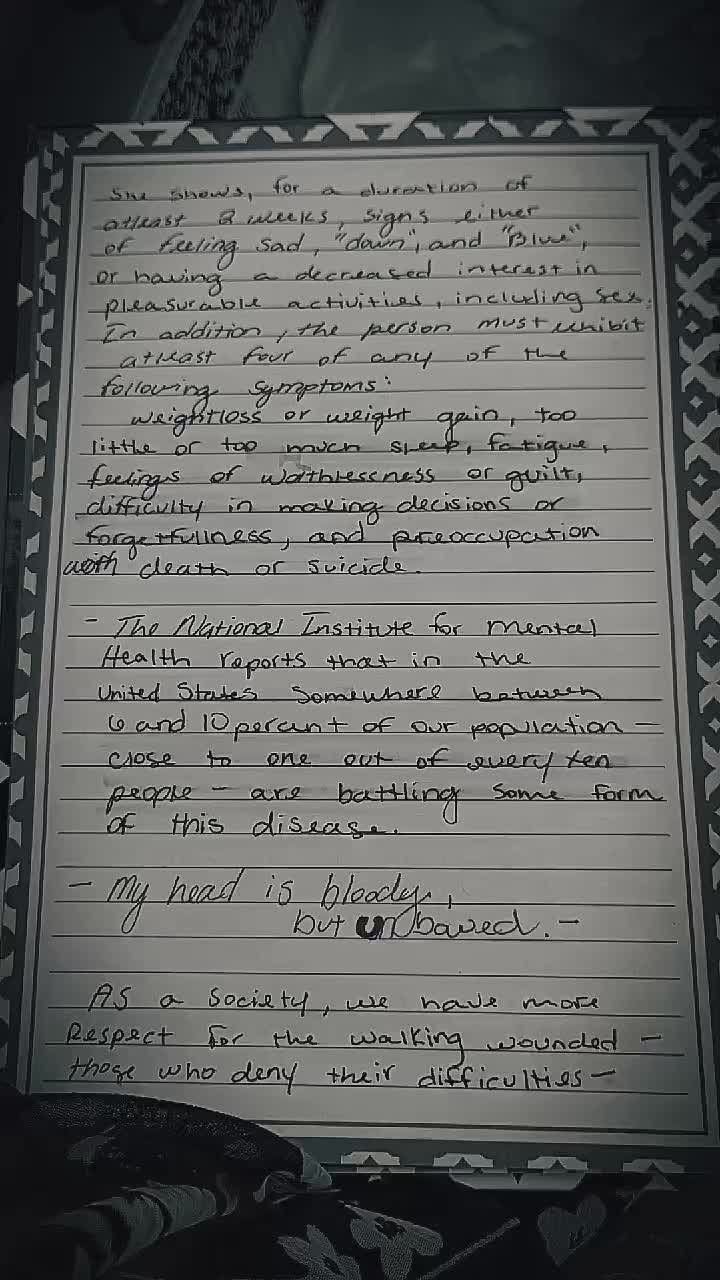 She shows, for a duration of
atleast 2 weeks, signs either
of feeling sad, "down", and "Blue",
or having a decreased interest in
pleasurable activities, including sex.
In addition, the person must exhibit
atleast four of any of the
following symptoms:
weightloss or weight gain, too
little or too much sleep, fatigue,
feelings of worthlessness or guilt,
difficulty in making decisions or
forgetfullness, and preoccupation
with death or suicide.
- The National Institute for mental
Health reports that in the
United States Somewhere between
6 and 10 percent of our population -
close to one out of every ten
people - are battling some form
of this disease.
- My head is bloody,
but unbowed. -
As a society, we have more
Respect for the walking wounded -
those who deny their difficulties -